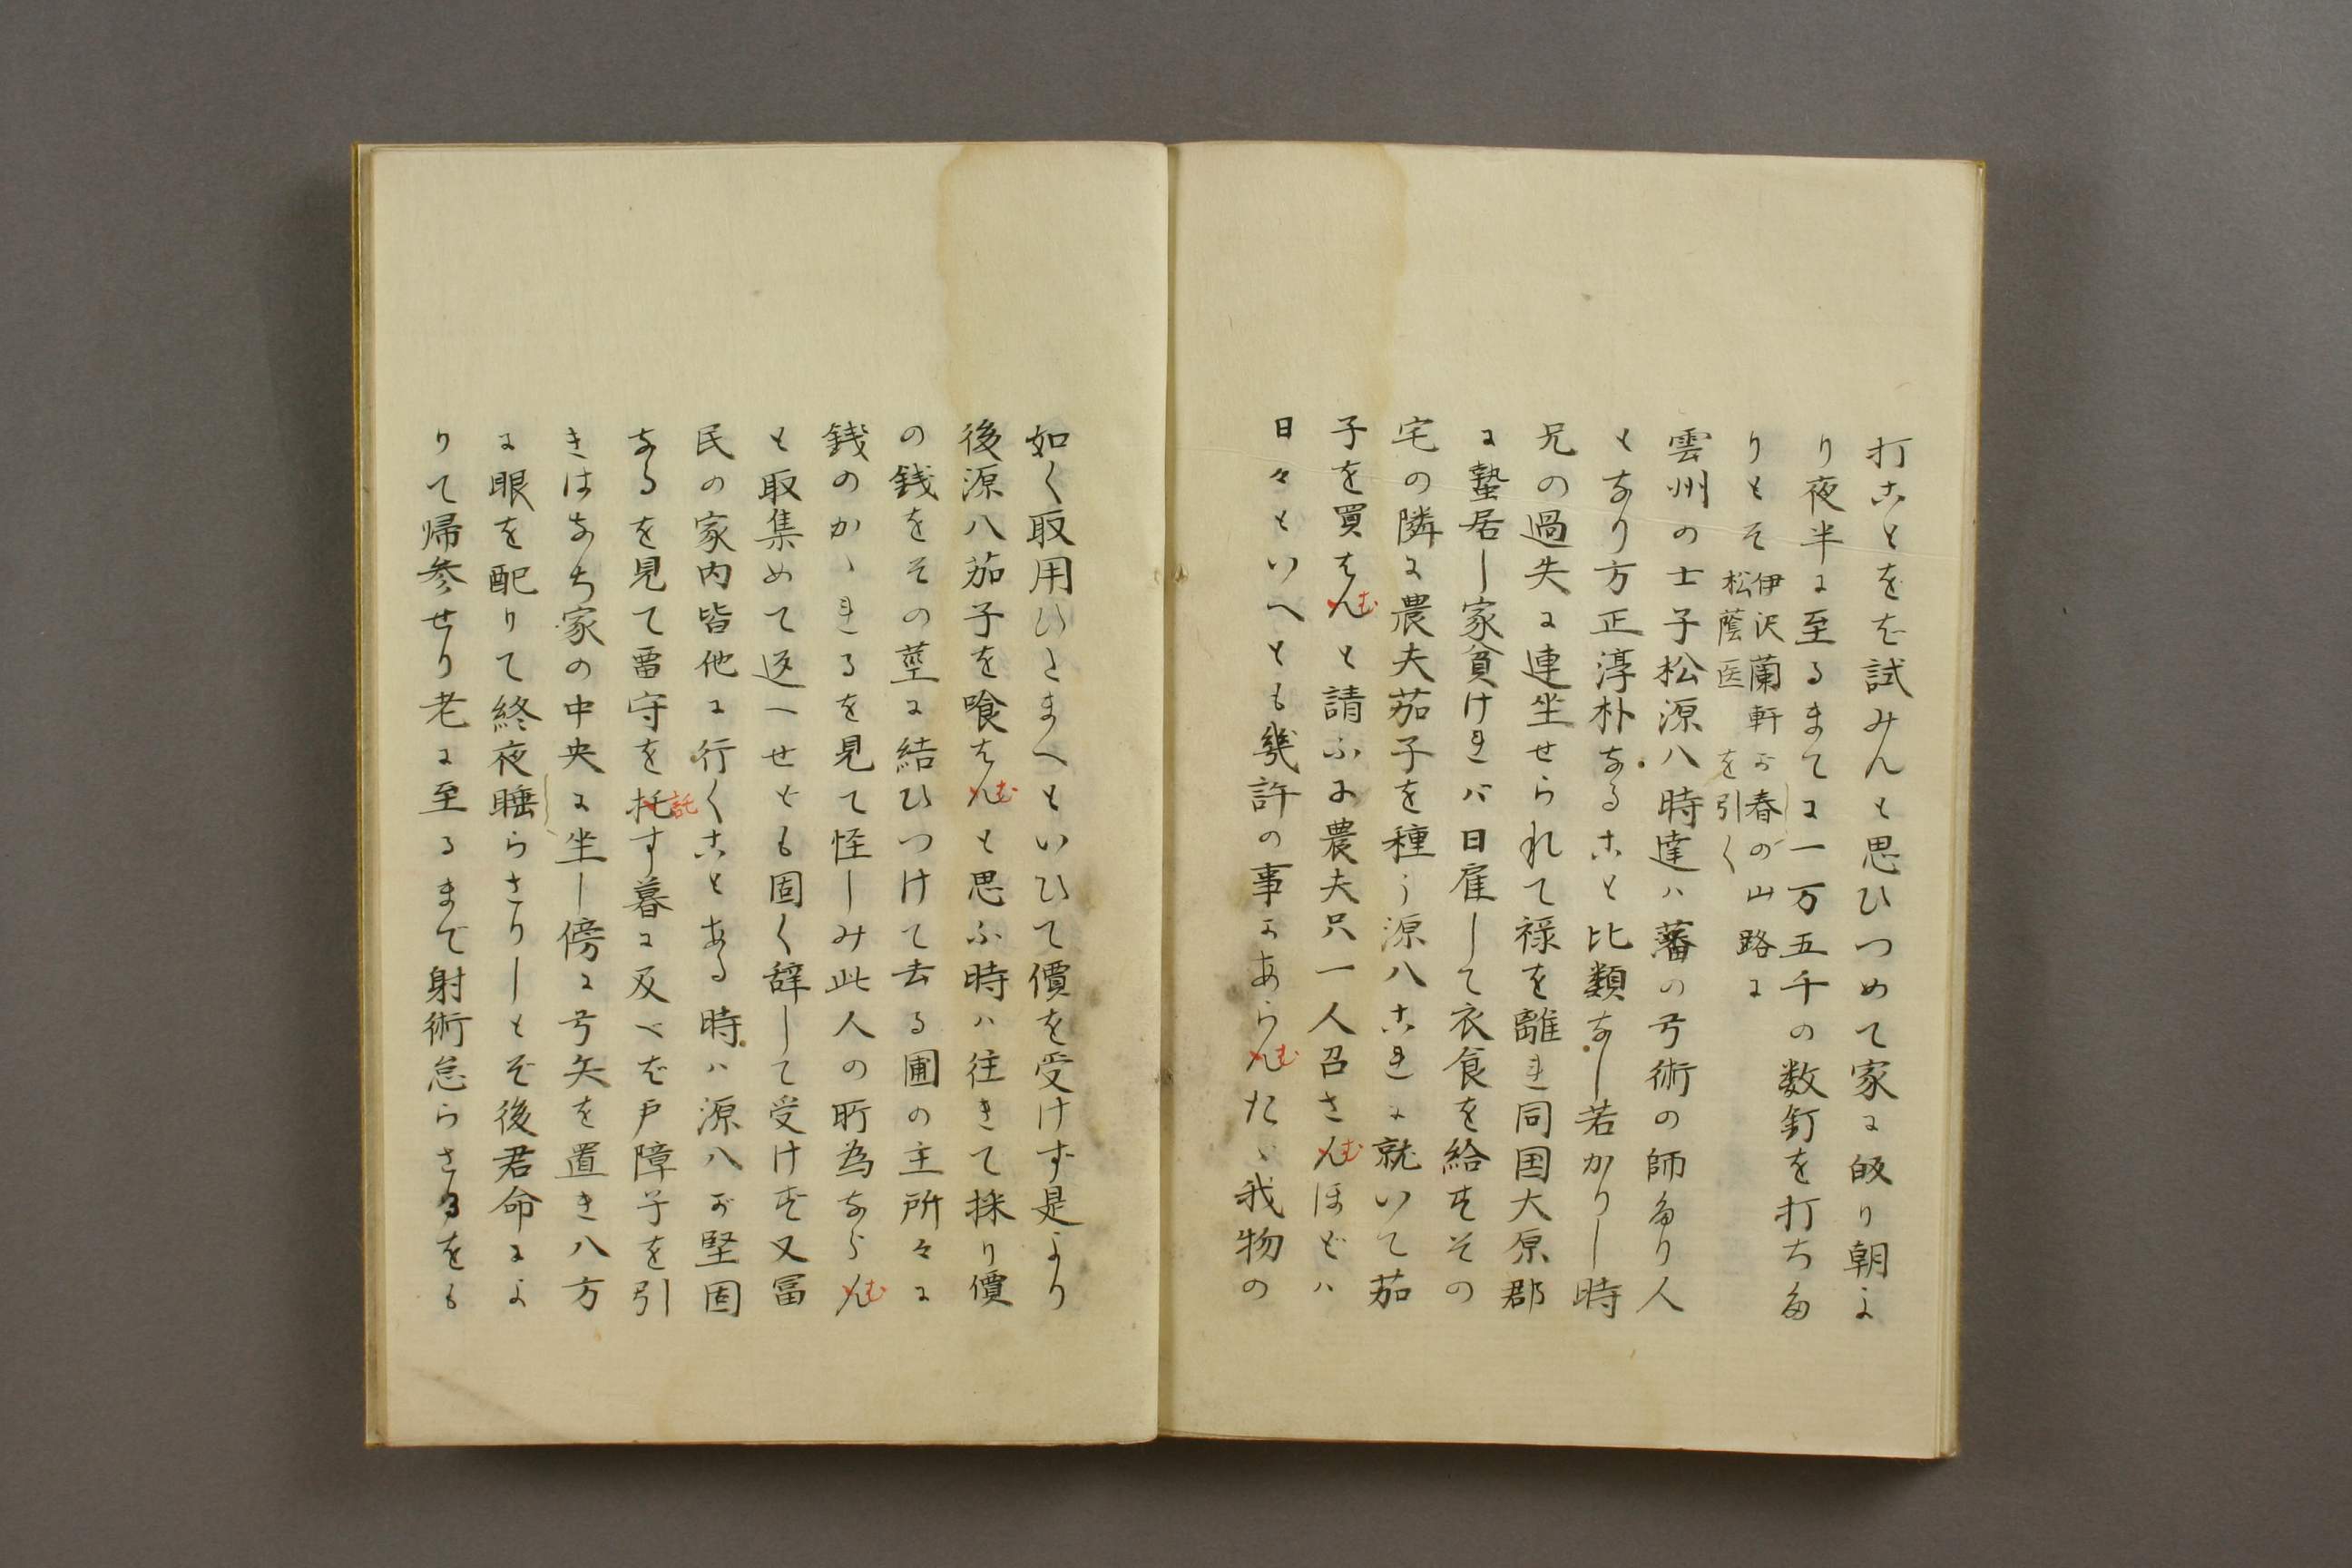 打ことをを試みんと思ひつめて家に皈り朝よ
り夜半に至るまてに一万五千の数釘を打ちた
りとそ
伊沢蘭軒が春の山路に
松蔭医を引く
雲州の士子松源八時達ハ藩の弓術の師たり人
となり方正淳朴なること比類なし若かりし時
兄の過失に連坐せられて禄を離れ同国大原郡
に蟄居し家貧けれバ日雇して衣食を給すその
宅の隣に農夫茄子を種う源八これに就いて茄
子を買はんむと請ふに農夫只一人召さんむほどハ
日々といへとも幾許の事にあらんむたゝ我物の
如く取用ひたまへといひて價を受けず是より
後源八茄子を喰はんむと思ふ時ハ往きて採り價
の銭をその茎に結ひつけて去る圃の主所々に
銭のかゝれるを見て怪しみ此人の所為ならんむ
と取集めて返へせとも固く辞して受けず又冨
民の家内皆他に行くことある時ハ源八が堅固
なるを見て畱守を托託す暮に及べを戸障子を引
きはなち家の中央に坐し傍に弓矢を置き八方
に眼を配りて終夜睡らさりしとぞ後君命によ
りて帰参せり老に至るまで射術怠らさるをも